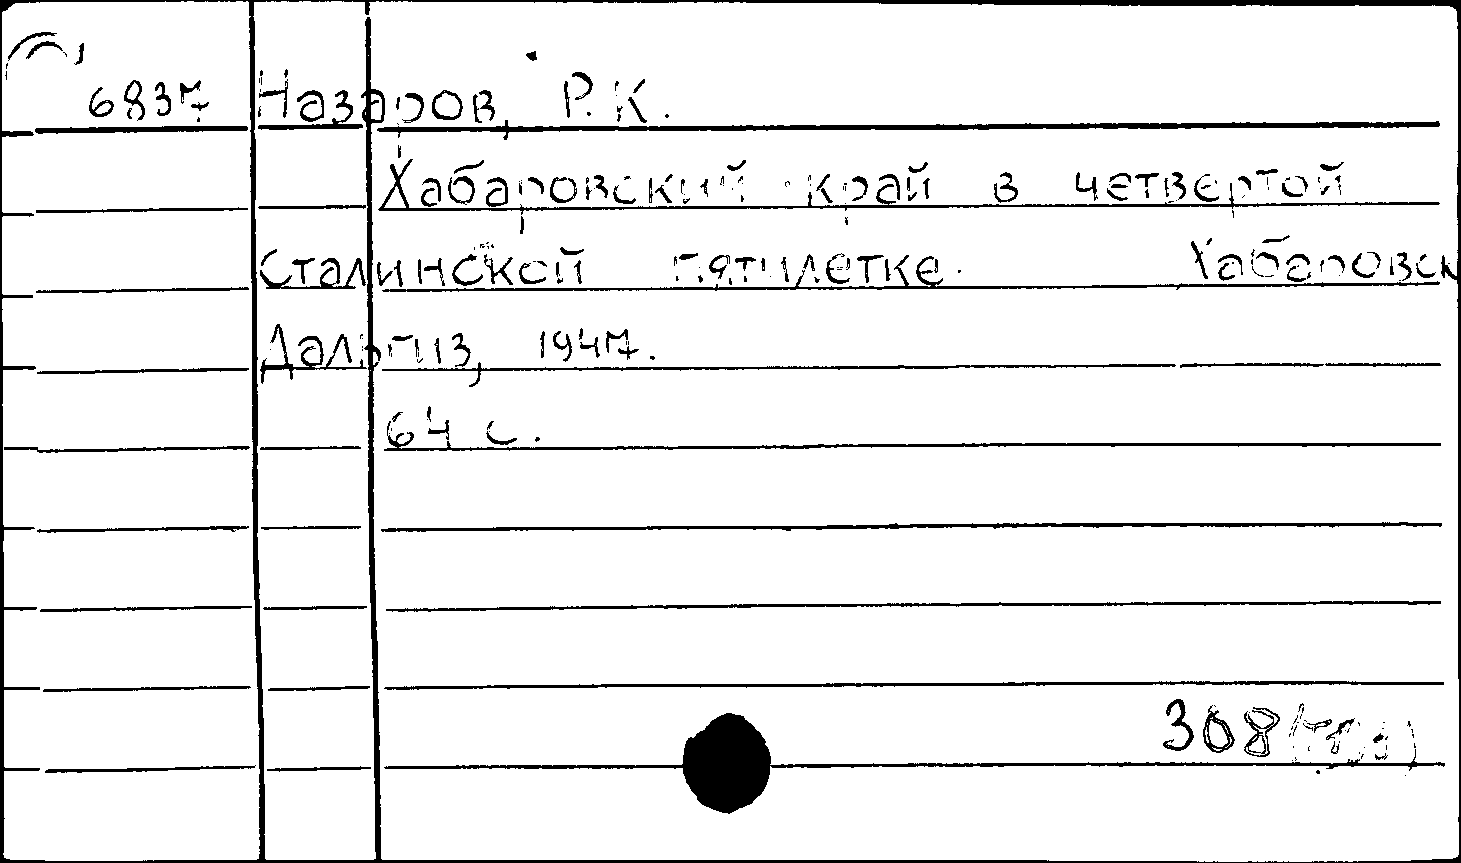 6837 Назаров, Р. К.
Хабаровский край в четвертой
сталинской пятилетке. Хабаровск
Дальгиз, 1947.
64 с.
308